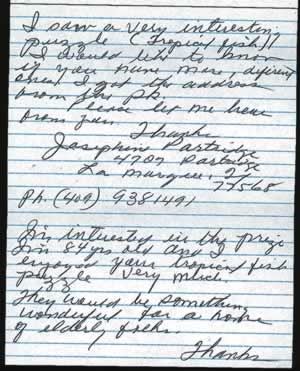 I saw a very interesting
puzzle (Tropical fish)!
I would like to know
if you have more diferent
ones. I got the address
from the
Please let me hear
from you.
Thanks
Josephine Partridge
4707 Partridge
La Marque, TX
77568
Ph. (409) 9381491
I'm interested in the prize
I'm 84 yrs old and I
enjoyed your tropical fish
puzzle very much.
They would be something
wonderful for a home
of elderly folks.
Thanks